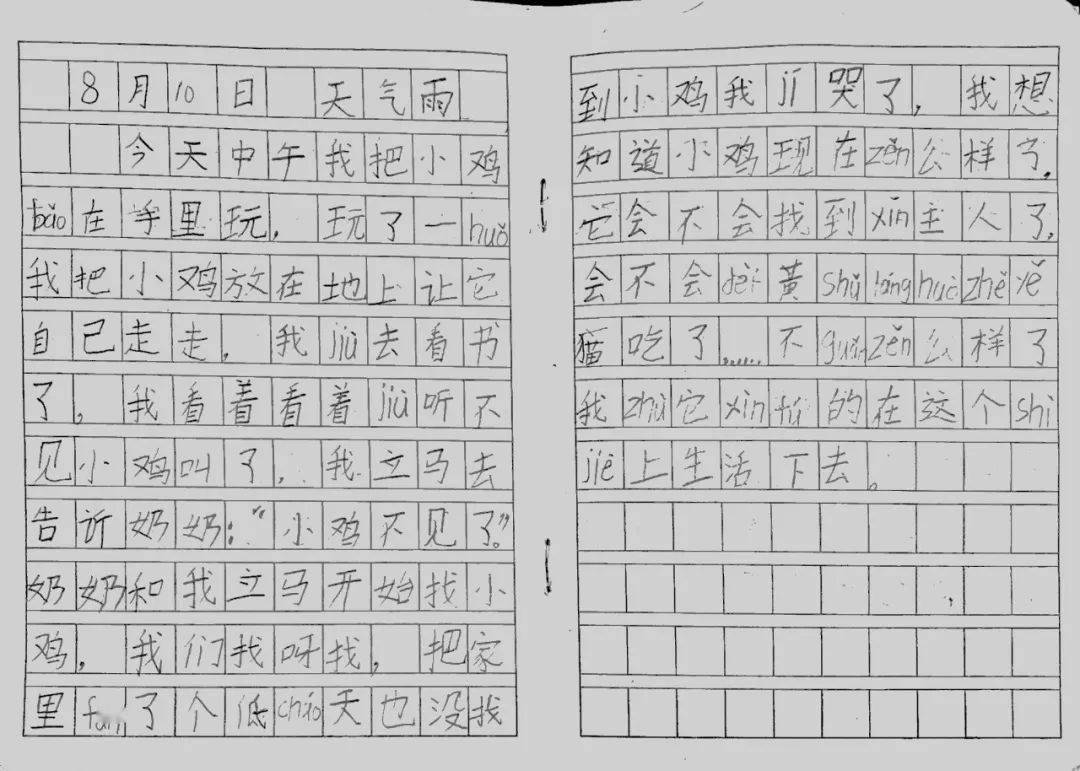 8月10日 天气雨
今天中午我把小鸡
bǎo在手里玩，玩了一huǒ
我把小鸡放在地上让它
自己走走，我jiù去看书
了，我看着看着jiù听不
见小鸡叫了，我立马去
告诉奶奶：“小鸡不见了。”
奶奶和我立马开始找小
鸡，我们找呀找，把家
里fān了个低cháo天也没找
到小鸡我jí哭了，我想
知道小鸡现在zěn么样了，
它会不会找到xīn主人了，
会不会bèi黄shǔ láng huò zhě yě
猫吃了……不guǎn zěn么样了
我zhù它xìn fú的在这个shì
jiè上生活下去。